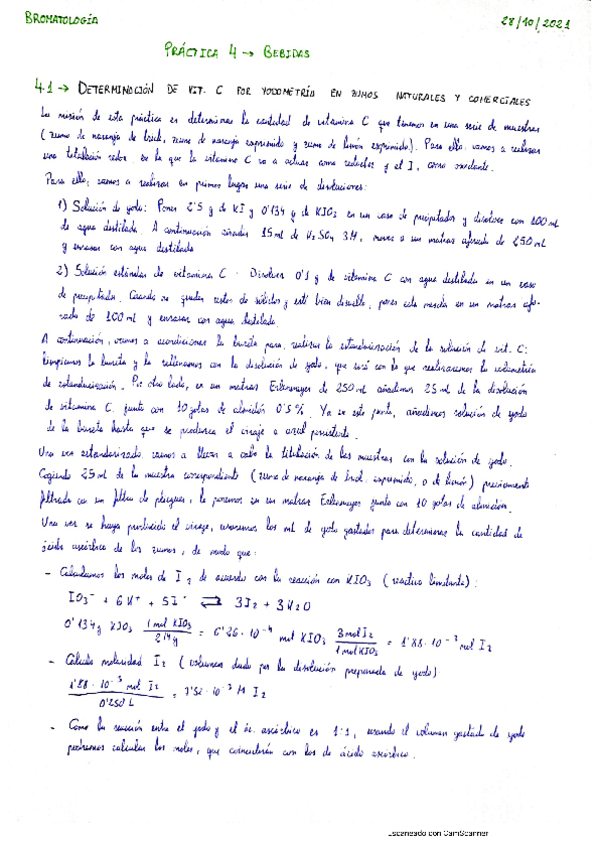 BROMATOLOGÍA
28/10/2021
PRÁCTICA 4 → BEBIDAS
4.1 → DETERMINACIÓN DE VIT. C POR YODOMETRÍA EN ZUMOS NATURALES Y COMERCIALES
La misión de esta práctica es determinar la cantidad de vitamina C que tenemos en una serie de muestras
(zumo de naranja de brick, zumo de naranja exprimido y zumo de limón exprimido). Para ello, vamos a realizar
una titulación redox en la que la vitamina C va a actuar como reductor y el I₂ como oxidante.
Para ello, vamos a realizar en primer lugar una serie de disoluciones:
1) Solución de yodo: Poner 2'5 g de KI y 0'134 g de KIO₃ en un vaso de precipitados y disolver con 100 mL
de agua destilada. A continuación añadir 15 mL de H₂SO₄ 3M, mover a un matraz aforado de 250 mL
y enrasar con agua destilada
2) Solución estándar de vitamina C: Disolver 0'1 g de vitamina C con agua destilada en un vaso
de precipitados. Cuando no queden restos de sólidos y esté bien disuelto, poner esta mezcla en un matraz afo-
rado de 100 mL y enrasar con agua destilada.
A continuación, vamos a acondicionar la bureta para realizar la estandarización de la solución de vit. C:
limpiamos la bureta y la rellenamos con la disolución de yodo, que será con lo que realizaremos la volumetría
de estandarización. Por otro lado, en un matraz Erlenmeyer de 250 mL añadimos 25 mL de la disolución
de vitamina C junto con 10 gotas de almidón 0'5%. Ya en este punto, añadimos solución de yodo
de la bureta hasta que se produzca el viraje a azul persistente.
Una vez estandarizado vamos a llevar a cabo la titulación de las muestras con la solución de yodo.
Cogiendo 25 mL de la muestra correspondiente (zumo de naranja de brick, exprimido, o de limón) previamente
filtrado con un filtro de pliegues, lo ponemos en un matraz Erlenmeyer junto con 10 gotas de almidón.
Una vez se haya producido el viraje, conocemos los mL de yodo gastados para determinar la cantidad de
ácido ascórbico de los zumos, de modo que:
- Calculamos los moles de I₂ de acuerdo con la reacción con KIO₃ (reactivo limitante):
IO₃⁻ + 6H⁺ + 5I⁻ ⇄ 3I₂ + 3H₂O
0'134g KIO₃ 1 mol KIO₃ / 214 g = 6'26·10⁻⁴ mol KIO₃ 3 mol I₂ / 1 mol KIO₃ = 1'88·10⁻³ mol I₂
- Cálculo molaridad I₂ (volumen dado por la disolución preparada de yodo):
1'88·10⁻³ mol I₂ / 0'250 L = 7'52·10⁻³ M I₂
- Como la reacción entre el yodo y el ác. ascórbico es 1:1, usando el volumen gastado de yodo
podremos calcular los moles, que coincidirán con los de ácido ascórbico.
Escaneado con CamScanner